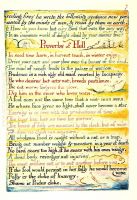 roding fires he wrote the following sentence now per=
cieved by the minds of men, & read by them on earth.
How do you know but ev'ry Bird that cuts the airy way,
Is an immense world of delight, clos'd by your senses five?
Proverbs of Hell
In seed time learn, in harvest teach, in winter enjoy.
Drive your cart and your plow over the bones of the dead.
The road of excess leads to the palace of wisdom.
Prudence is a rich ugly old maid courted by Incapacity.
He who desires but acts not, breeds pestilence.
The cut worm forgives the plow.
Dip him in the river who loves water.
A fool sees not the same tree that a wise man sees.
He whose face gives no light, shall never become a star.
Eternity is in love with the productions of time.
The busy bee has no time for sorrow.
All wholsom food is caught without a net or a trap.
Bring out number weight & measure in a year of dearth.
No bird soars too high, if he soars with his own wings.
A dead body revenges not injuries.
If the fool would persist in his folly he would become
wise
Folly is the cloke of knavery.
Shame is Prides cloke.